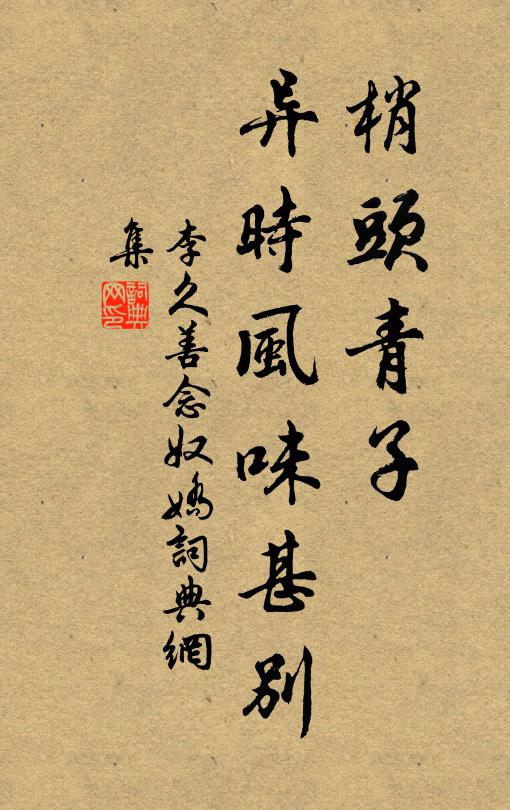 梢頭青子
异時風味甚別
李久善念奴嬌詞典網
集
詞典
网印